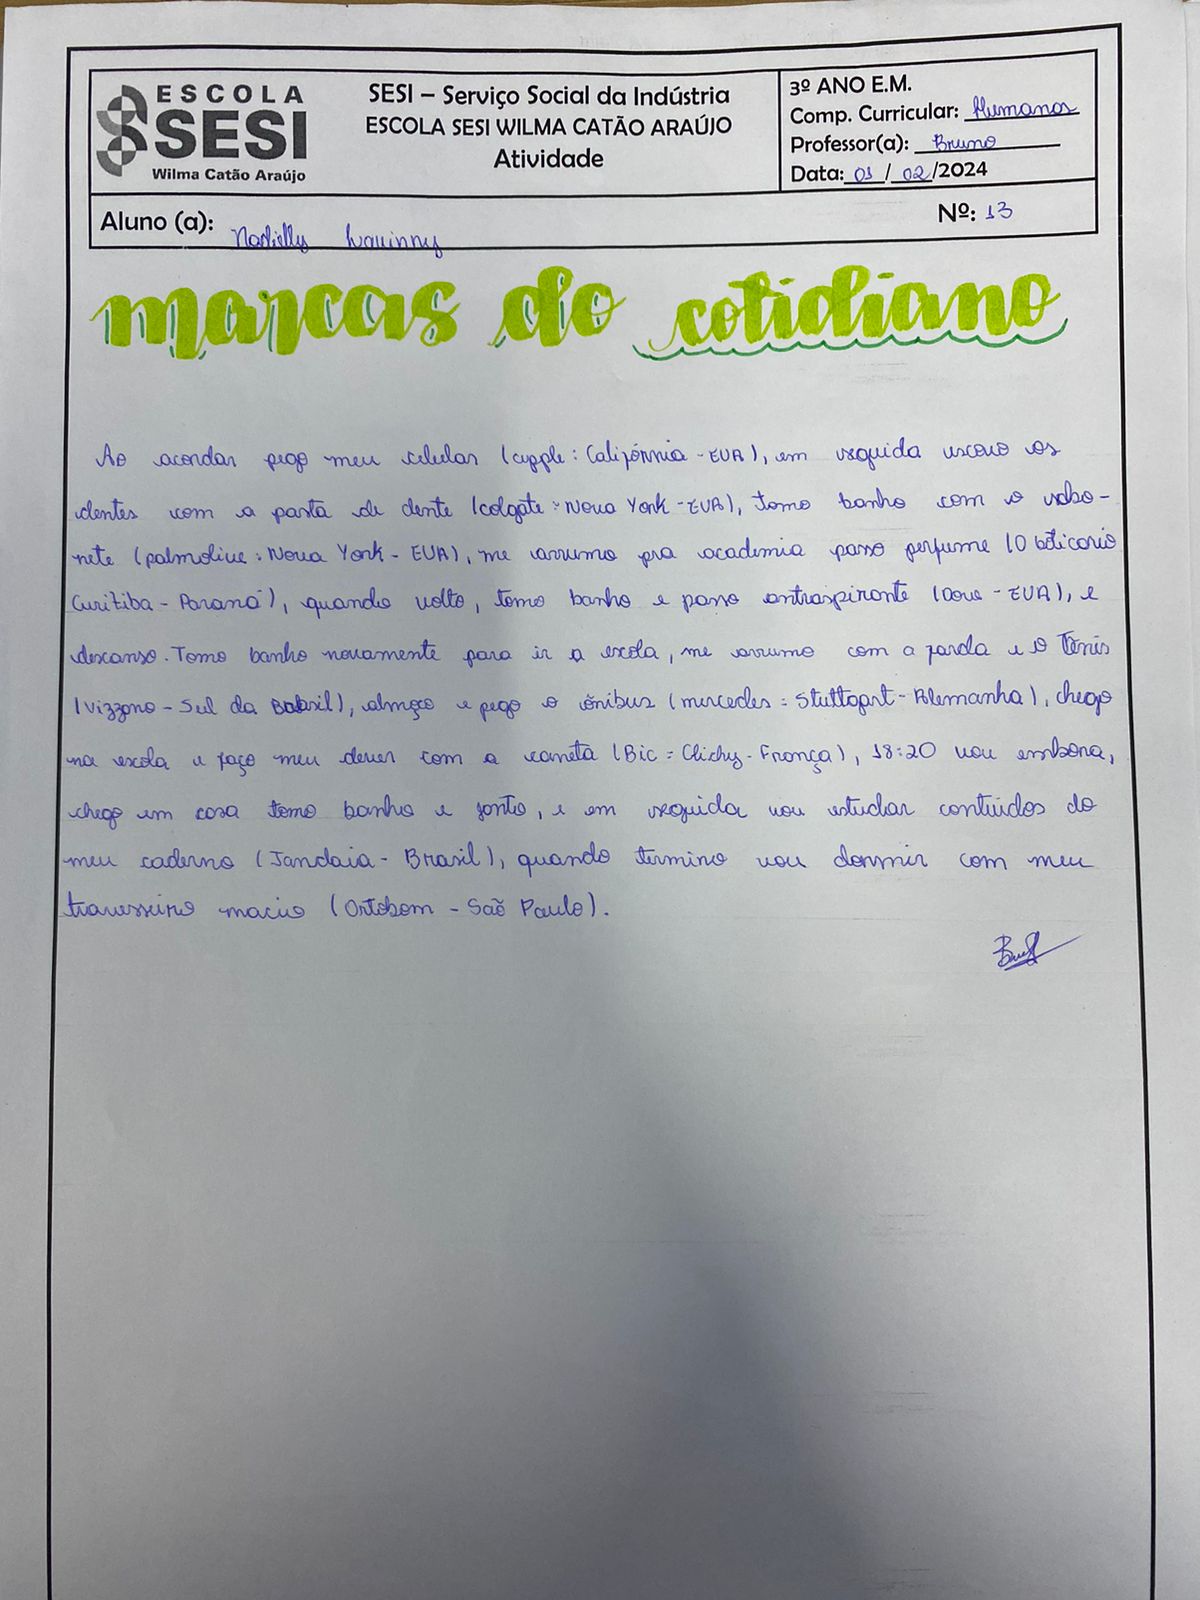 ESCOLA
SESI
Wilma Catão Araújo
SESI – Serviço Social da Indústria
ESCOLA SESI WILMA CATÃO ARAÚJO
Atividade
3º ANO E.M.
Comp. Curricular: Humanas
Professor(a): Bruno
Data: 01/02/2024
Aluno (a):
Nº: 13
marcas do cotidiano
Ao acordar pego meu celular (apple: Califórnia - EUA), em seguida escovo os
dentes com a pasta de dente (colgate: Nova York - EUA), tomo banho com o sabo-
nete (palmolive: Nova York - EUA), me arrumo pra academia passo perfume (O boticario
Curitiba - Paraná), quando volto, tomo banho e passo antraspirante (Dove - EUA), e
descanso. Tomo banho novamente para ir a escola, me arrumo com a farda e o Tênis
(Vizzano - Sul da Brasil), almoço e pego o ônibus (mercedes: Stuttgart - Alemanha), chego
na escola e faço meu dever com a caneta (Bic: Clichy - França), 18:20 vou embora,
chego em casa tomo banho e janto, e em seguida vou estudar contúdos do
meu caderno (Jandaia - Brasil), quando termino vou dormir com meu
travesseiro macio (Ortobom - Saõ Paulo).